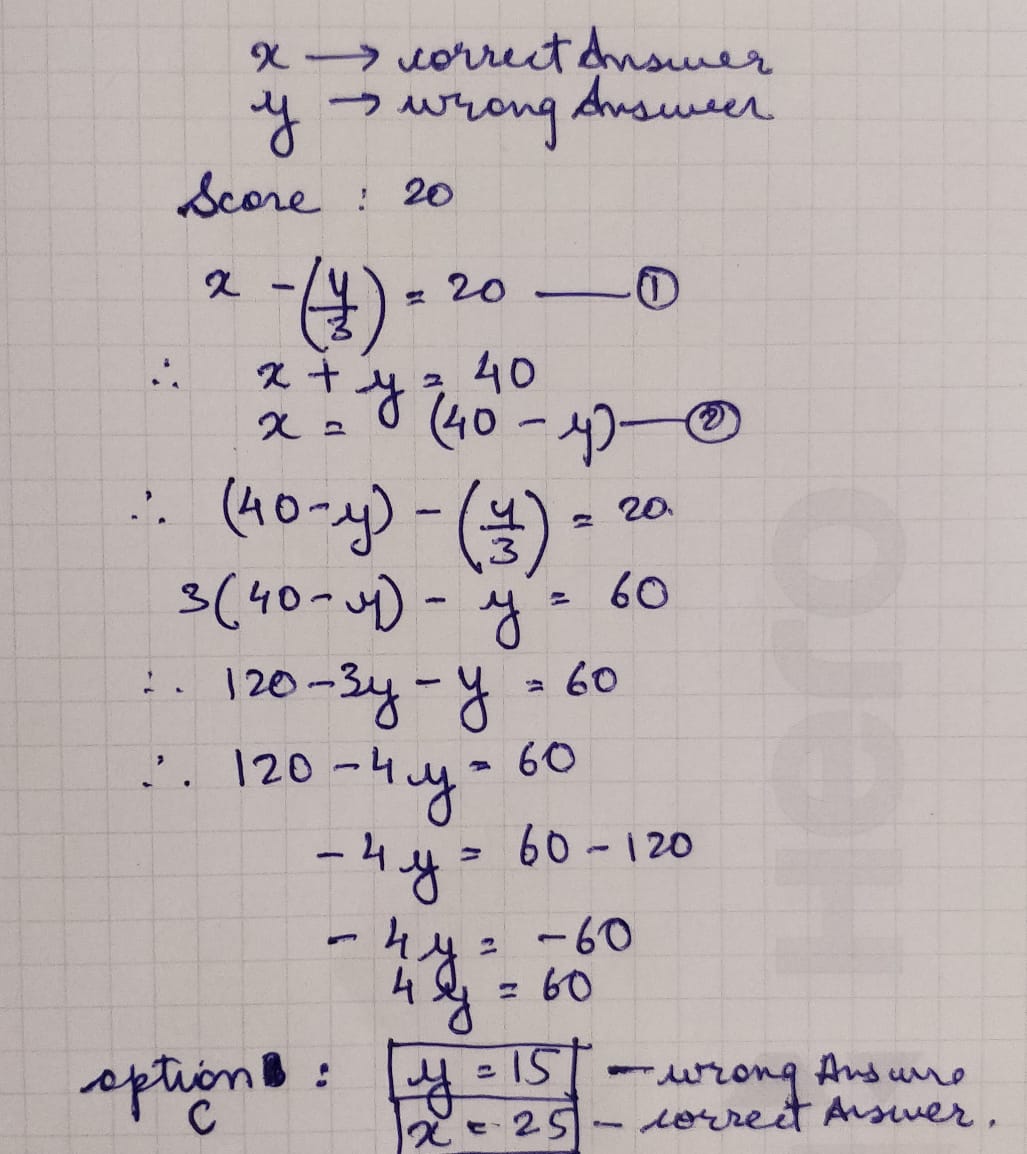 x → correct Answer
y → wrong Answer
Score : 20
x - (y/3) = 20 — ①
∴ x + y = 40
x = (40 - y) — ②
∴ (40-y) - (y/3) = 20.
3(40-y) - y = 60
∴ 120-3y-y = 60
∴ 120-4y = 60
-4y = 60-120
-4y = -60
4y = 60
option C : y = 15 — wrong
x = 25 - correct Answer.
Hero